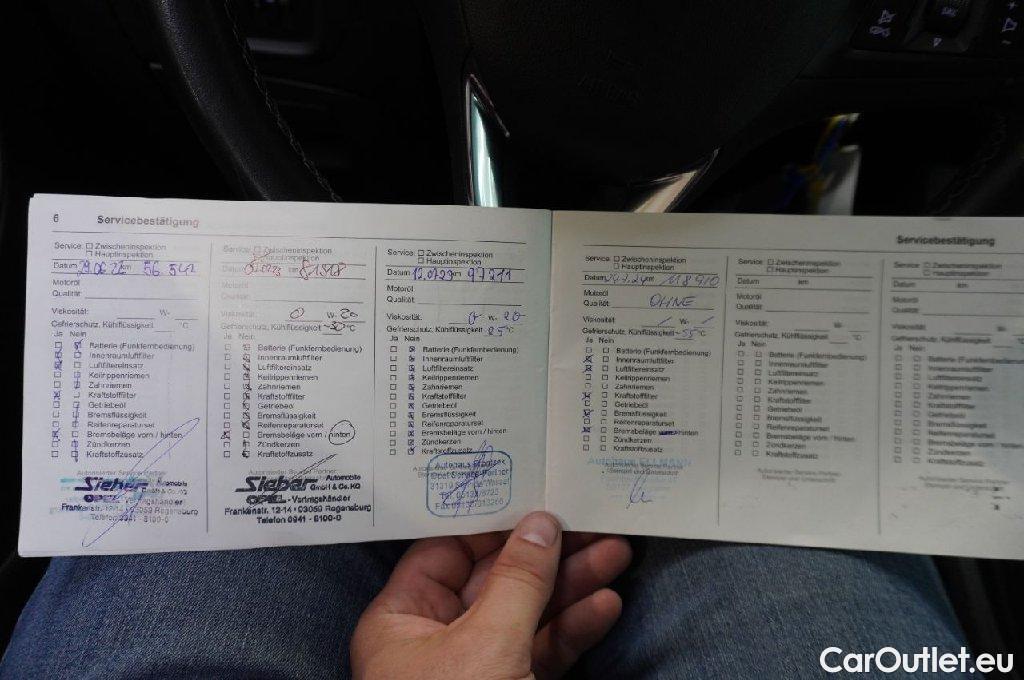 6 Servicebestätigung
Service: Zwischeninspektion
Hauptinspektion
Datum 29.06.22 km 56.542
Motoröl
Qualität:
Viskosität: W-
Gefrierschutz, Kühlflüssigkeit °C
Ja Nein
Batterie (Funkfernbedienung)
Innenraumluftfilter
Luftfiltereinsatz
Keilrippenriemen
Zahnriemen
Kraftstofffilter
Getriebeöl
Bremsflüssigkeit
Reifenreparaturset
Bremsbeläge vorn / hinten
Zündkerzen
Kraftstoffzusatz
Autorisierter Service Partner
Sieber Automobile
GmbH & Co. KG
OPEL - Vertragshändler
Frankenstr. 12-14 93059 Regensburg
Telefon 0941 - 8100-0
Service: Zwischeninspektion
Hauptinspektion
Datum km 81.918
Motoröl
Qualität:
Viskosität: 0 W- 20
Gefrierschutz, Kühlflüssigkeit -30 °C
Ja Nein
Batterie (Funkfernbedienung)
Innenraumluftfilter
Luftfiltereinsatz
Keilrippenriemen
Zahnriemen
Kraftstofffilter
Getriebeöl
Bremsflüssigkeit
Reifenreparaturset
Bremsbeläge vorn / hinten
Zündkerzen
Kraftstoffzusatz
Autorisierter Service Partner
Sieber Automobile
GmbH & Co. KG
OPEL - Vertragshändler
Frankenstr. 12-14 · 93059 Regensburg
Telefon 0941 - 8100-0
Service: Zwischeninspektion
Hauptinspektion
Datum 12.07.23 km 97211
Motoröl
Qualität:
Viskosität: 0 W- 20
Gefrierschutz, Kühlflüssigkeit °C
Ja Nein
Batterie (Funkfernbedienung)
Innenraumluftfilter
Luftfiltereinsatz
Keilrippenriemen
Zahnriemen
Kraftstofffilter
Getriebeöl
Bremsflüssigkeit
Reifenreparaturset
Bremsbeläge vorn / hinten
Zündkerzen
Kraftstoffzusatz
Autohaus
Opel Service-Partner
Servicebestätigung
Service: Zwischeninspektion
Hauptinspektion
Datum km 118910
Motoröl
Qualität OHNE
Viskosität W-
Gefrierschutz, Kühlflüssigkeit -35 °C
Ja Nein
Batterie (Funkfernbedienung)
Innenraumluftfilter
Luftfiltereinsatz
Keilrippenriemen
Zahnriemen
Kraftstofffilter
Getriebeöl
Bremsflüssigkeit
Reifenreparaturset
Bremsbeläge vorn / hinten
Zündkerzen
Kraftstoffzusatz
Service: Zwischeninspektion
Hauptinspektion
Datum km
Motoröl
Qualität:
Viskosität: W-
Gefrierschutz, Kühlflüssigkeit °C
Ja Nein
Batterie (Funkfernbedienung)
Innenraumluftfilter
Luftfiltereinsatz
Keilrippenriemen
Zahnriemen
Kraftstofffilter
Getriebeöl
Bremsflüssigkeit
Reifenreparaturset
Bremsbeläge vorn / hinten
Zündkerzen
Kraftstoffzusatz
Autorisierter Service Partner
Stempel und Unterschrift
Service: Zwischeninspektion
Hauptinspektion
Datum km
Motoröl
Qualität:
Viskosität: W-
Gefrierschutz, Kühlflüssigkeit
Ja Nein
Batterie (Funkfernbedienung)
Innenraumluftfilter
Luftfiltereinsatz
Keilrippenriemen
Zahnriemen
Kraftstofffilter
Getriebeöl
Bremsflüssigkeit
Reifenreparaturset
Bremsbeläge vorn / hinten
Zündkerzen
Kraftstoffzusatz
Autorisierter Service Partner
Stempel und Unterschrift
CarOutlet.eu